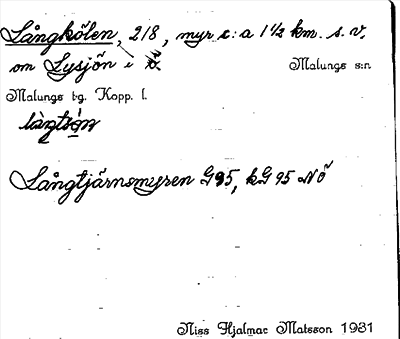 Långkölen, 218, myr c:a 1 1/2 km. s.v.
om Lysjön i Ö Malungs s:n
Malungs tg. Kopp. l.
Långtjärnsmyren G95, kG 95 NÖ
Niss Hjalmar Matsson 1931